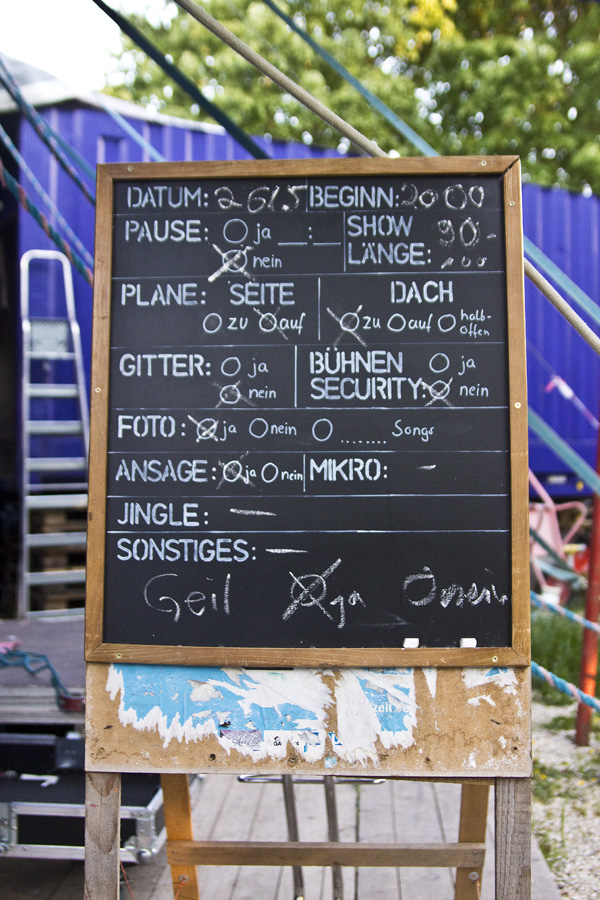 DATUM: 26.5 BEGINN: 20:00
PAUSE: ja __:__ SHOW 90.-
nein LÄNGE:
PLANE: SEITE DACH
zu auf zu auf halb-offen
GITTER: ja BÜHNEN ja
nein SECURITY: nein
FOTO: ja nein ....... Songs
ANSAGE: ja nein MIKRO: -
JINGLE: -
SONSTIGES: -
Geil ja nein